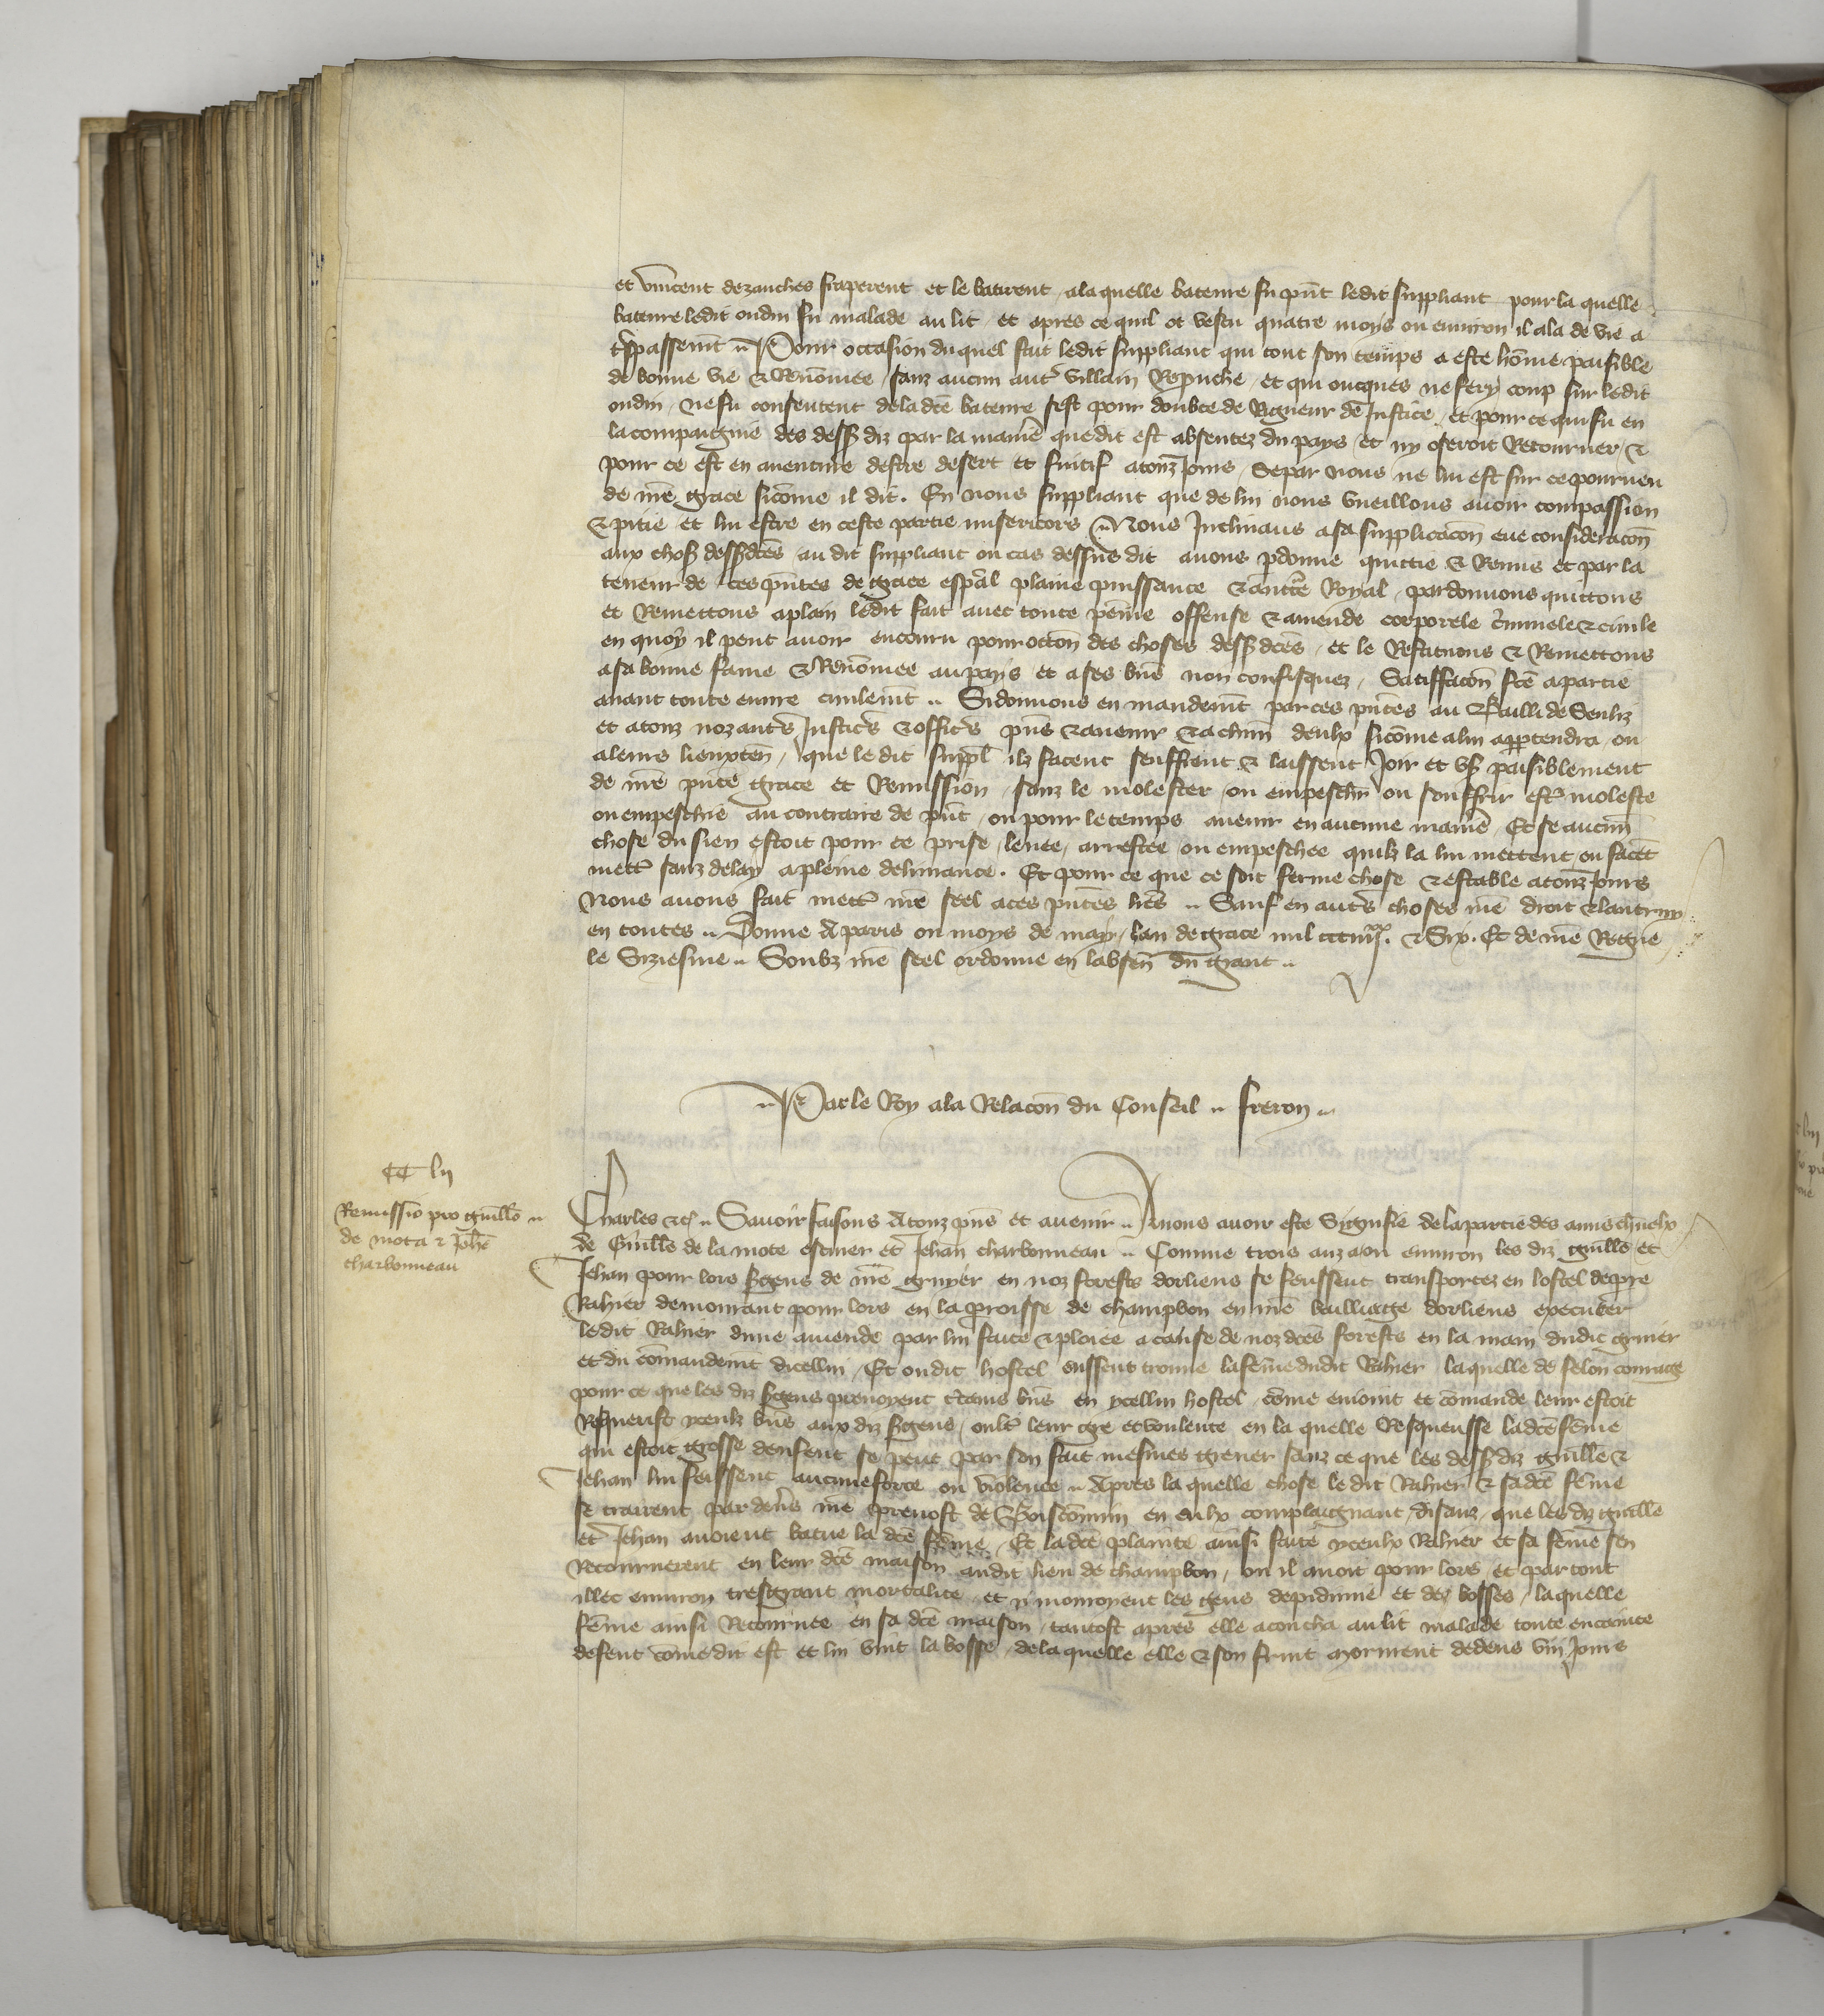 et vincent dezanches fraperent et le batirent a la quelle bateure fu pñt ledit suppliant pour la quelle
bateure ledit oudin fu malade au lit et apres ce quil ot vescu quatre moys ou environ il ala de vie a
trespassemt Pour occasion du quel fait ledit suppliant qui tout son temps a este hõme paisible
de bonne vie & Renõmee sanz aucun autre villain Repruche et qui oncques ne fery coup sur ledit
oudin ne fu consentent de la dcẽ bateure sest pour doubte de Rigueur de Justice et pour ce qui fu en
la compaignie des dess diz par la maniẽ que dit est absentez du pays et ny oseroit Retourner &
pour ce est en aventure destre desert et fuitif a touz Jours se par nous ne lui est sur ce pourveu
de nrẽ grace sicõme il dit. En nous suppliant que de lui nous vueillons avoir compassion
& pitie et lui estre en ceste partie misericors Nous Inclinans a sa supplicacõn eue consideracõn
aux choses dessdcẽs au dit suppliant ou cas dessus dit avons pdonne quictie & Remis et par la
teneur de ces pñtes de grace espãl plaine puissance & auctte Royal pardonnons quictons
et Remettons a plain ledit fait avec toute peinne offense & amende corporele criminele & civile
en quoy il peut avoir encouru pour occõn des choses dessdcẽs et le Restituons & Remettons
a sa bonne fame & Renõmee au pays et a ses biẽs non confisquez Satiffacõn fcẽ a partie
avant toute euvre civilemt Si donnons en mandemt par ces pñtes au Bailli de Senliz
et a touz noz autrs Justicrs & officrs pñs & avenir & a chũn deulx sicõme a lui appartendra ou
a leurs lieuxteñ que le dit suppl ilz facent seuffrent & laissent Joir et user paisiblement
de nrẽ pñte grace et Remission sanz le molester ou empeschr ou souffrir estre moleste
ou empeschie au contraire de pñt ou pour le temps avenir en aucune maniẽ Et se aucuñ
chose du sien estoit pour ce prise levee arrestee ou empeschee quilz la lui mettent ou facẽt
mettre sanz delay a pleine delivrance. Et pour ce que ce soit ferme chose & estable a touz Jours
Nous avons fait mettre nrẽ seel a ces pñtes lrẽs Sauf en autrs choses nrẽ droit & lautruy
en toutes Donne A paris ou moys de may lan de grace mil ccc iiijxx & Six. Et de nrẽ Regne
le Siziesme Soubz nrẽ seel ordonne en labseñ du grant
Par le Roy a la Relacõn du Conseil freron
CC lij
Remissio pro guillõ
de mota & Johẽ
charbonneau
Charles &c Savoir faisons A touz pñs et avenir A nous avoir este Signifie de la partie des amis charnelx
de Guillẽ de la mote escuier et Jehan charbonneau Comme trois anz a ou environ les diz guillẽ et
Jehan pour lors sgens de nrẽ gruyer en noz forests dorliens se feussent transportez en lostel de pre
Rahier demourant pour lors en la proisse de champbon en nrẽ bailliage dorliens executer
ledit Rahier dune amende par lui faicte & ploiee a cause de noz dcẽs forests en la main dudit gruier
et du cõmandemt dicellui Et ou dit hostel eussent trouve la fẽme dudit Rahier laquelle de felon courage
pour ce que les diz sgens prenoyent ctains biẽs en ycellui hostel cõme enioint et cõmande leur estoit
Resqueust yceulz biẽs aux diz sgens oultre leur gre et voulente en la quelle Resqueusse ladcẽ fẽme
qui estoit grosse denfent se peut par son fait mesmes grever sanz ce que les dess diz guillẽ &
Jehan lui feissent aucune force ou violence Apres la quelle chose le dit Rahier & sa dcẽ fẽme
se trairent par devrs nrẽ prevost de Boiscõmun en eulx complaignant disans que les diz guillẽ
et Jehan avoient batue la dcẽ fẽme Et ladcẽ plainte ainsi faicte yceulx Rahier et sa fẽme sen
Retournerent en leur dcẽ maison audit lieu de champbon ou il avoit pour lors et par tout
illec environ tresgrant mortalite et y mouroyent les gens depidimie et de bosses laquelle
fẽme ainsi Retournee en sa dcẽ maison tantost apres elle acoucha au lit malade toute enceinte
desent cõme dit est et lui vint la bosse de la quelle elle & son fruit morurent dedens viij Jours